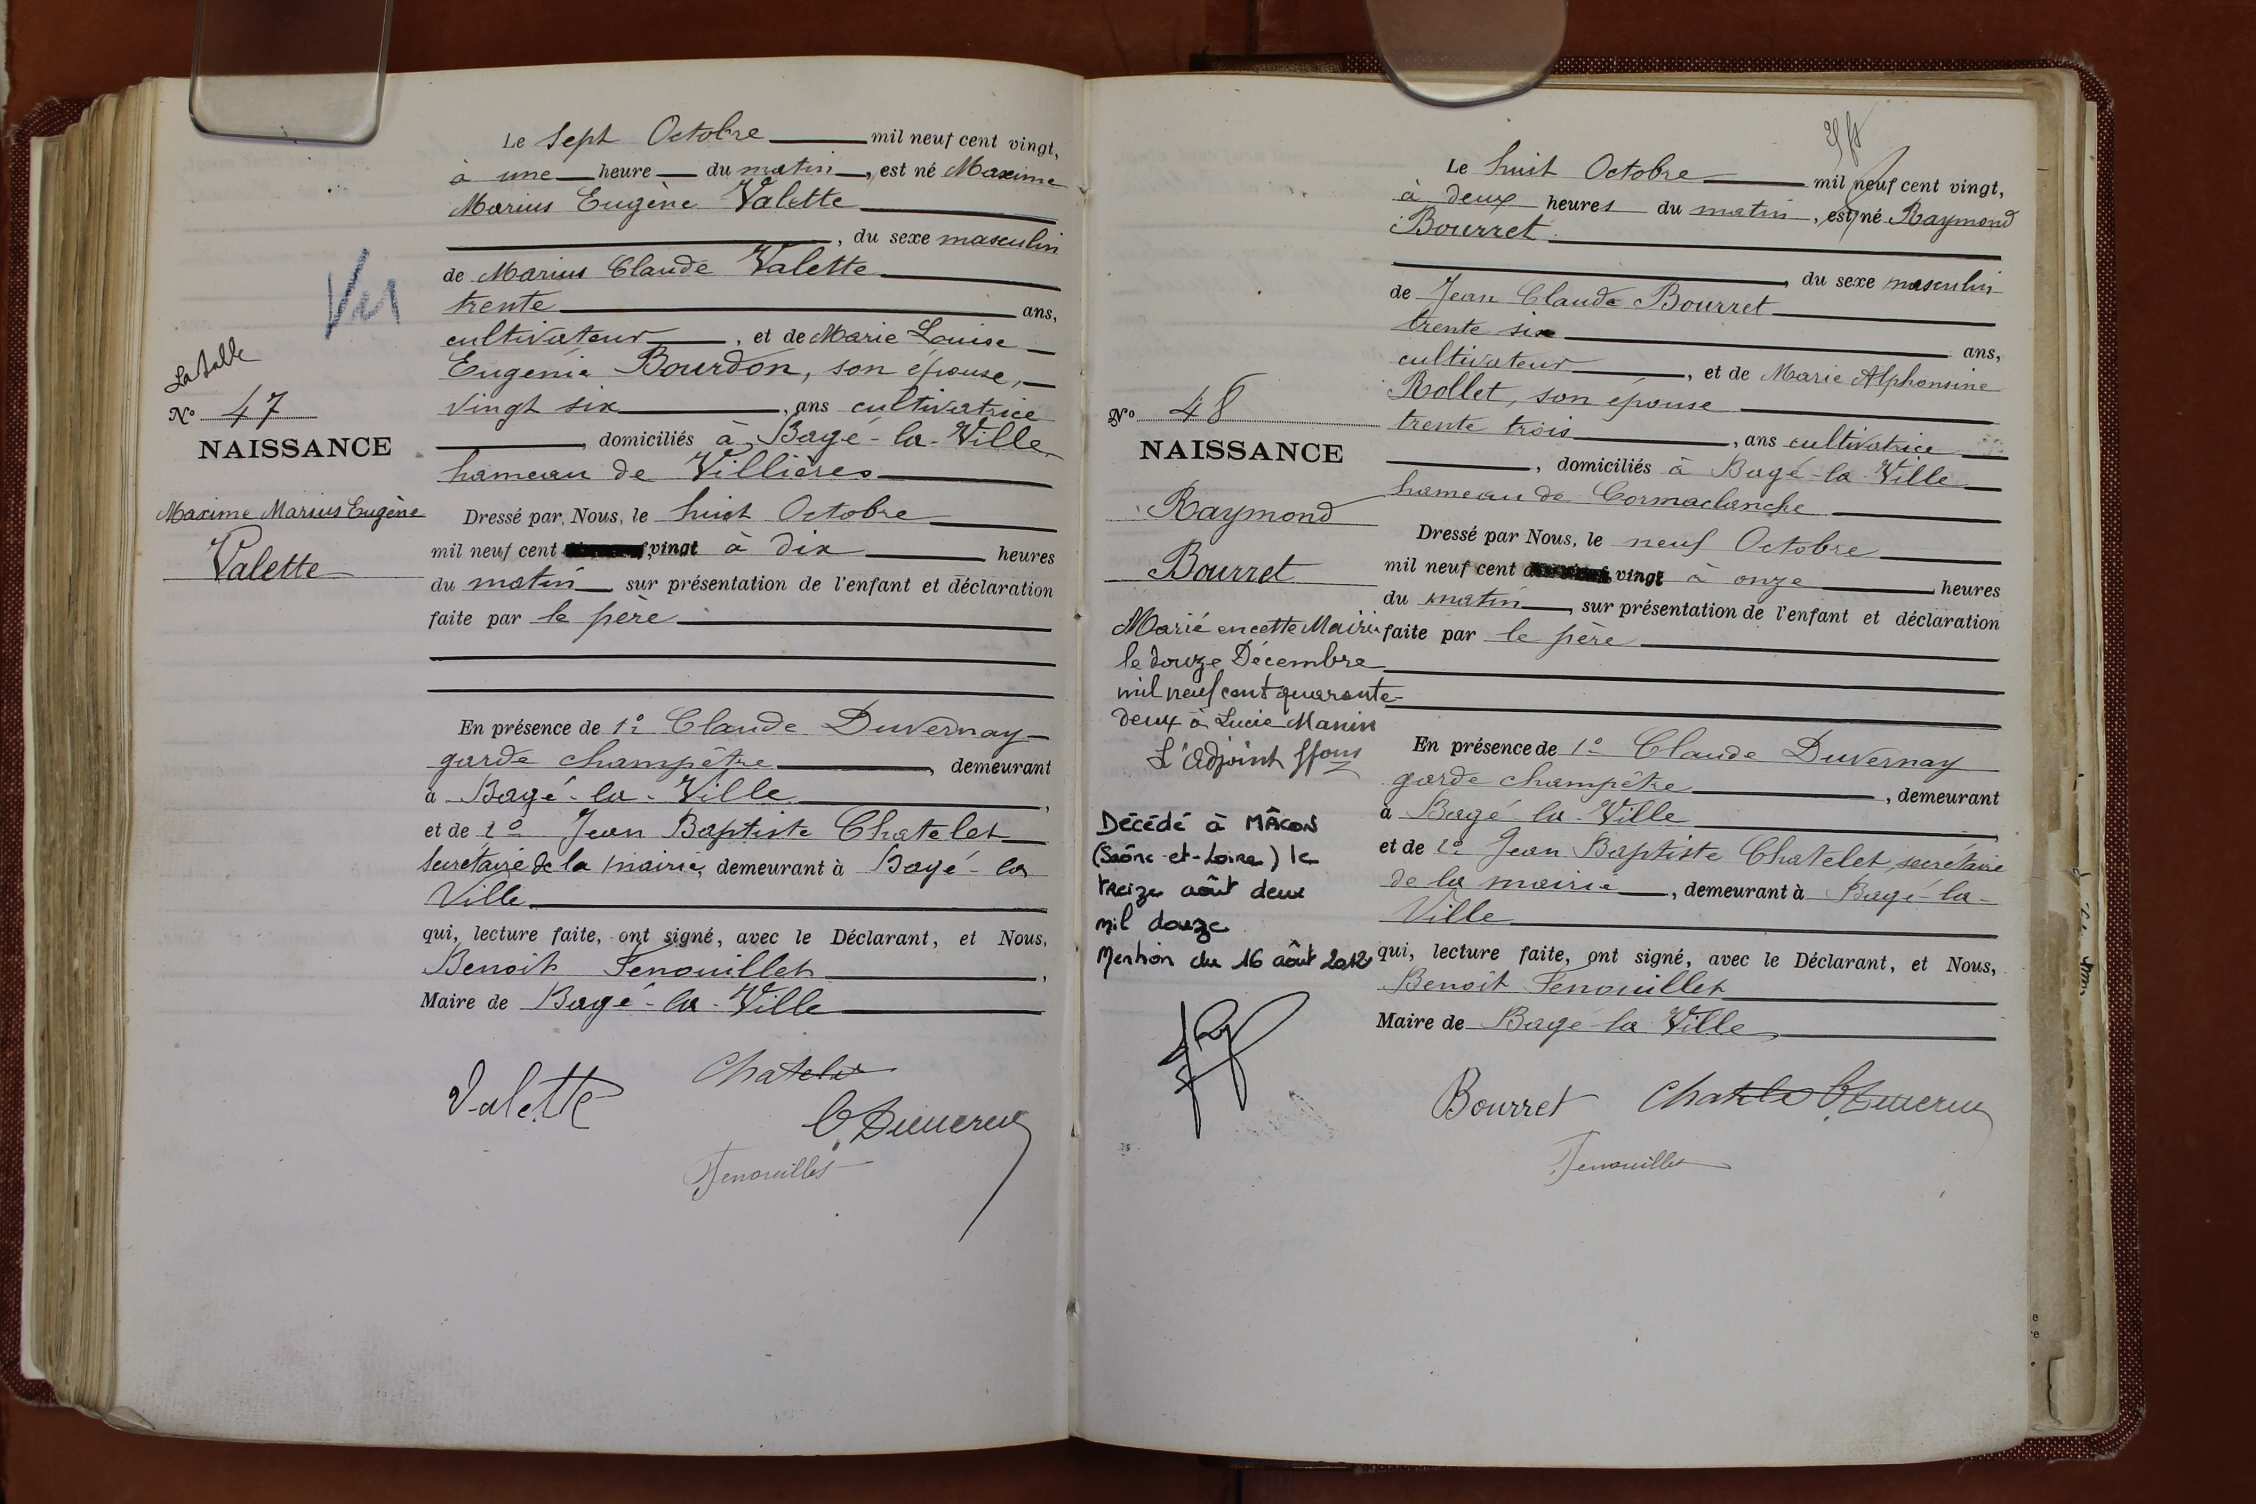 La salle
N° 47
NAISSANCE
Maxime Marius Eugène
Valette
Vu
Le sept Octobre mil neuf cent vingt,
à une heure du matin, est né Maxime
Marius Eugène Valette
, du sexe masculin
de Marius Claude Valette
trente ans,
cultivateur, et de Marie Louise
Eugénie Bourdon, son épouse,
vingt six, ans cultivatrice
, domiciliés à Bagé-la-Ville
hameau de Villières
Dressé par Nous, le huit Octobre
mil neuf cent vingt à dix heures
du matin sur présentation de l'enfant et déclaration
faite par le père
En présence de 1° Claude Duvernay
garde champêtre, demeurant
à Bagé-la-Ville,
et de 2° Jean Baptiste Chatelet
secrétaire de la mairie, demeurant à Bagé-la
Ville
qui, lecture faite, ont signé, avec le Déclarant, et Nous,
Benoit Fenouillet,
Maire de Bagé-la-Ville
Valette
Chatelet
C. Duvernay
Fenouillet
N° 48
NAISSANCE
Raymond
Bourret
Marié en cette Mairie
le douze Décembre
mil neuf cent quarante-
deux à Lucie Manin
L'Adjoint
Décédé à MÂCON
(Saône-et-Loire) le
treize août deux
mil douze
Mention du 16 août 2012
Le huit Octobre mil neuf cent vingt,
à deux heures du matin, est né Raymond
Bourret
, du sexe masculin
de Jean Claude Bourret
trente six ans,
cultivateur, et de Marie Alphonsine
Rollet, son épouse
trente trois, ans cultivatrice
, domiciliés à Bagé-la-Ville
hameau de Cormaclanche
Dressé par Nous, le neuf Octobre
mil neuf cent vingt à onze heures
du matin, sur présentation de l'enfant et déclaration
faite par le père
En présence de 1° Claude Duvernay
garde champêtre, demeurant
à Bagé-la-Ville
et de 2° Jean Baptiste Chatelet, secrétaire
de la mairie, demeurant à Bagé-la-
Ville
qui, lecture faite, ont signé, avec le Déclarant, et Nous,
Benoit Fenouillet
Maire de Bagé-la Ville
Bourret Chatelet C. Duvernay
Fenouillet